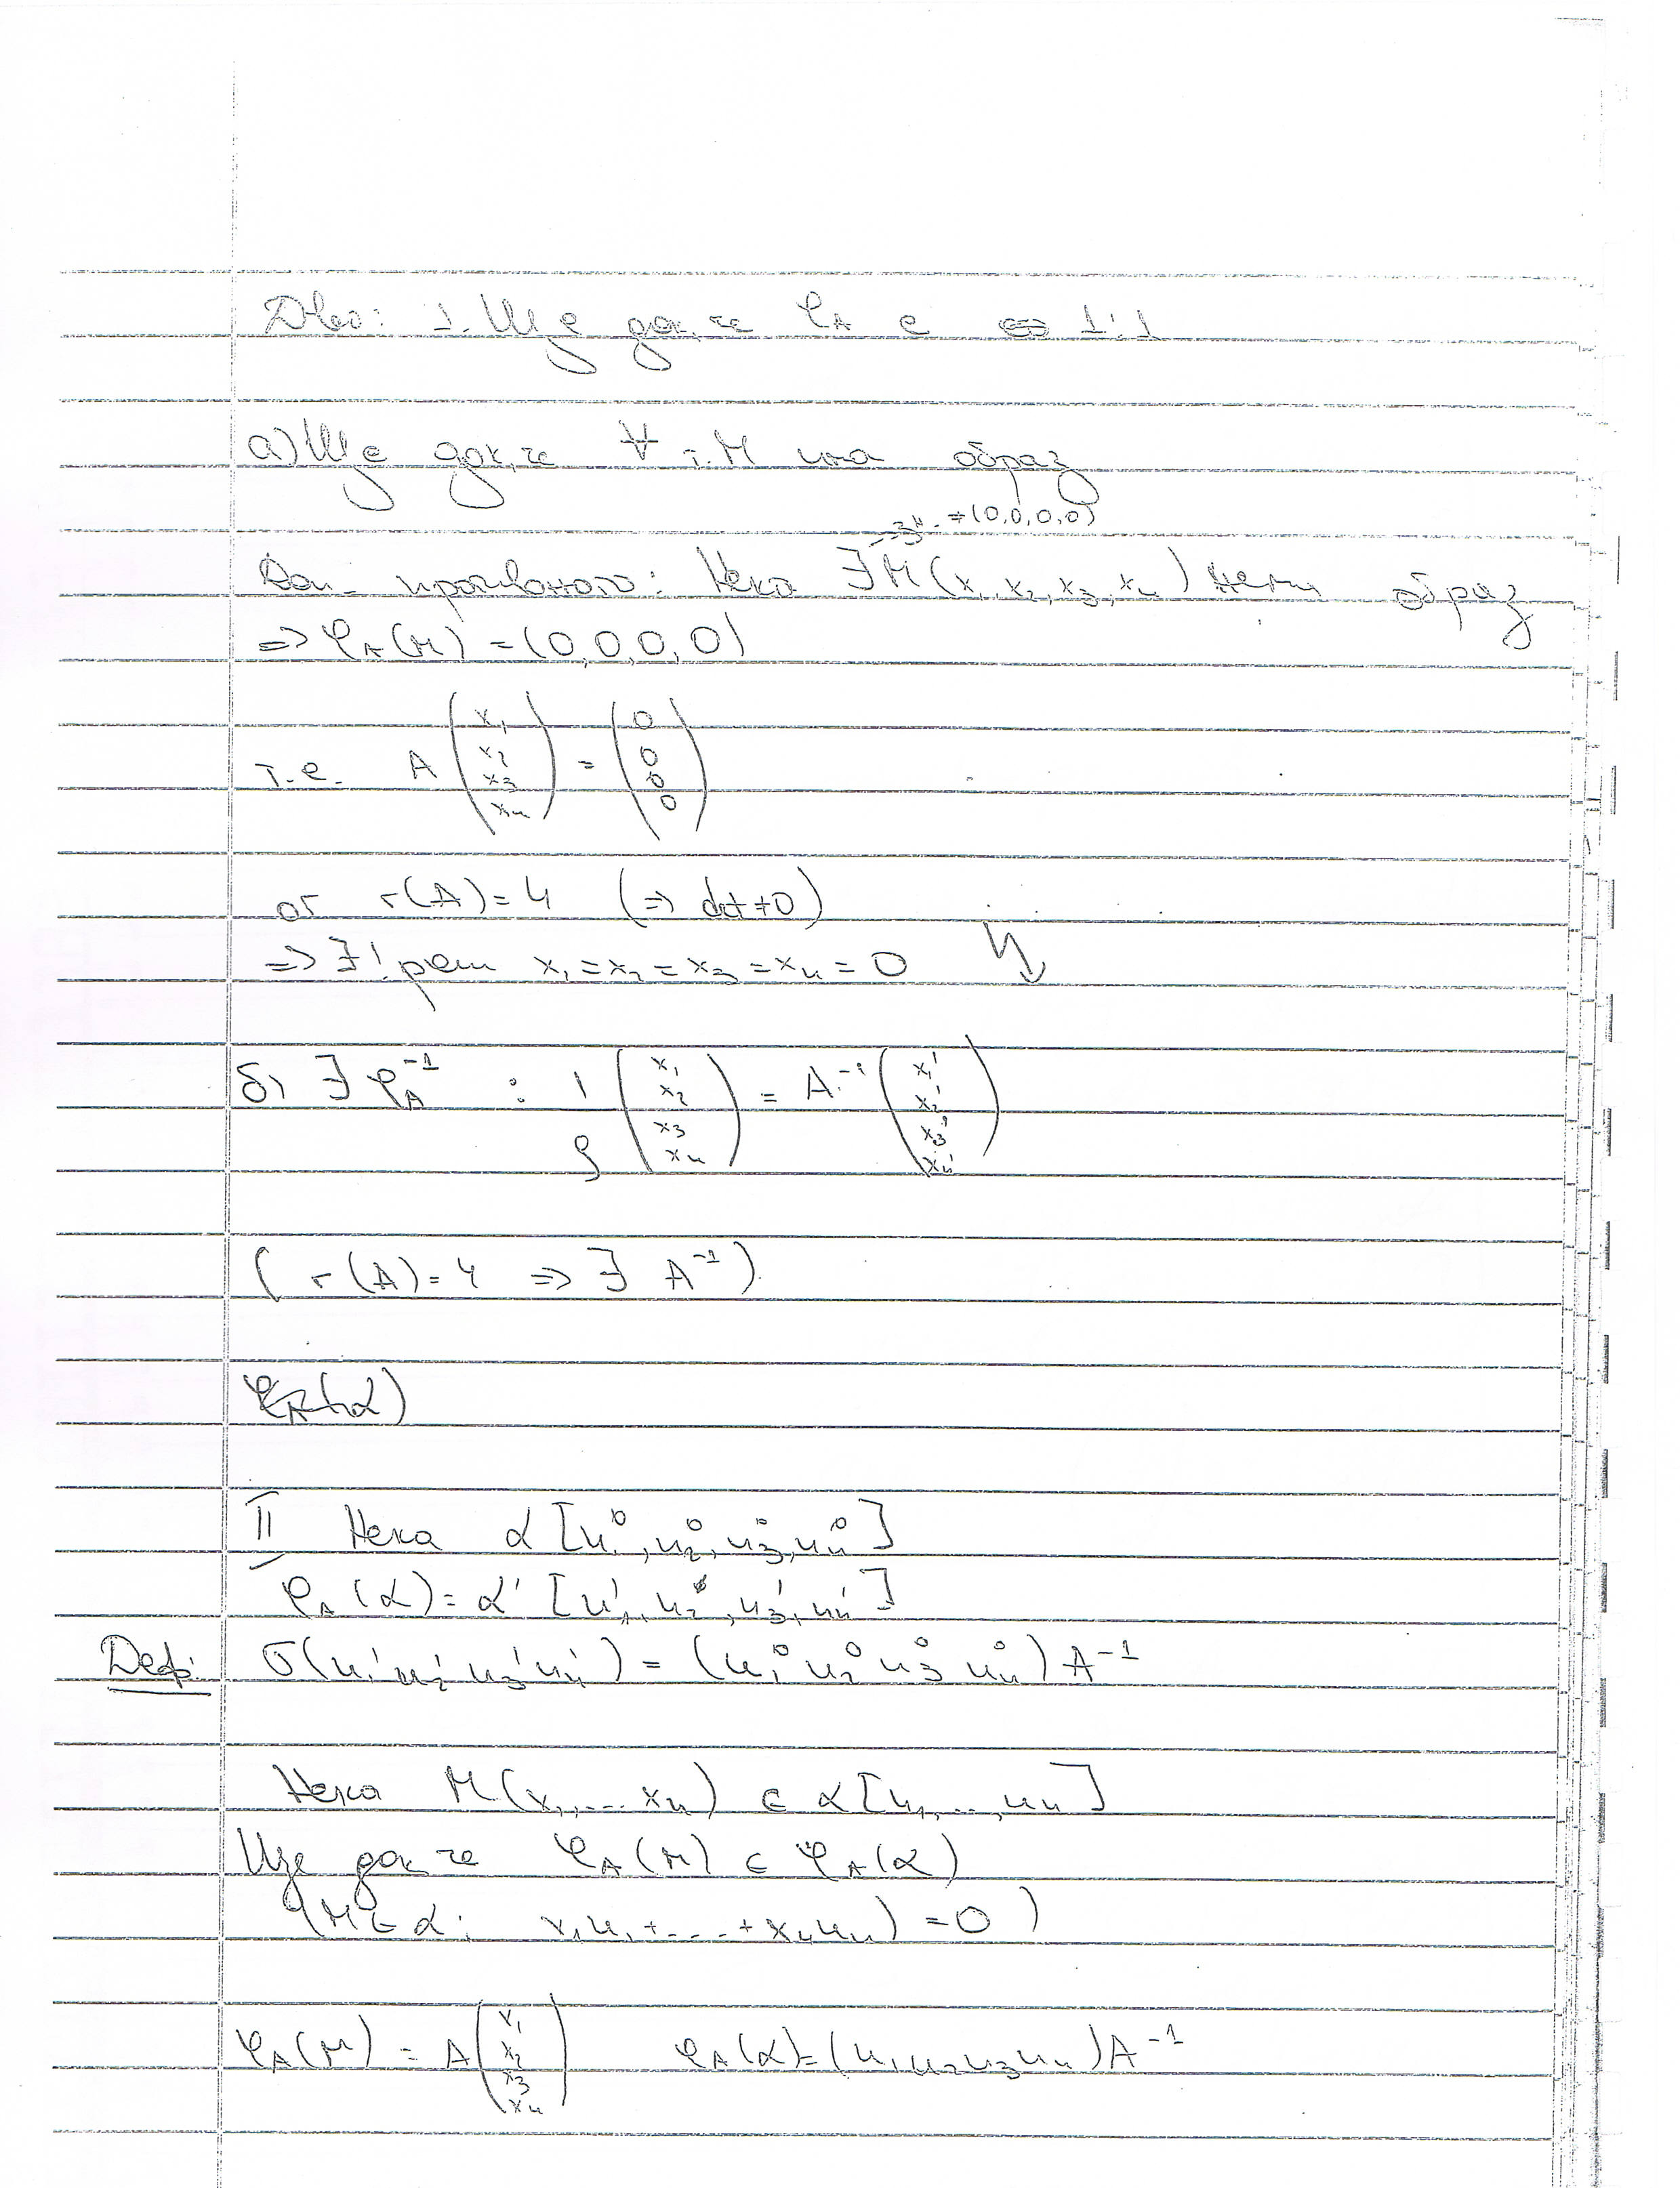 Дво: 1. Ще док, че φ_A е ⇔ 1:1
а) Ще док, че ∀ т. M има образ
≠(0,0,0,0)
Доп. противното: Нека ∃ M(x₁, x₂, x₃, x₄) няма образ
⇒ φ_A(M) = (0,0,0,0)
т.е. A (x₁ x₂ x₃ x₄) = (0 0 0 0)
от r(A) = 4 (⇒ det ≠ 0)
⇒ ∃! реш x₁ = x₂ = x₃ = x₄ = 0 ↯
б) ∃ φ_A⁻¹ : 1/ρ (x₁ x₂ x₃ x₄) = A⁻¹ (x₁' x₂' x₃' x₄')
( r(A) = 4 ⇒ ∃ A⁻¹ )
φ_A(α)
II Нека α [u₁⁰, u₂⁰, u₃⁰, u₄⁰]
φ_A(α) = α' [u₁', u₂', u₃', u₄']
Деф: σ(u₁' u₂' u₃' u₄') = (u₁⁰ u₂⁰ u₃⁰ u₄⁰) A⁻¹
Нека M(x₁, ... x₄) ∈ α [u₁, ..., u₄]
Ще док че φ_A(M) ∈ φ_A(α)
(M ∈ α : x₁u₁ + ... + x₄u₄) = 0 )
φ_A(M) = A (x₁ x₂ x₃ x₄) φ_A(α) = (u₁ u₂ u₃ u₄) A⁻¹